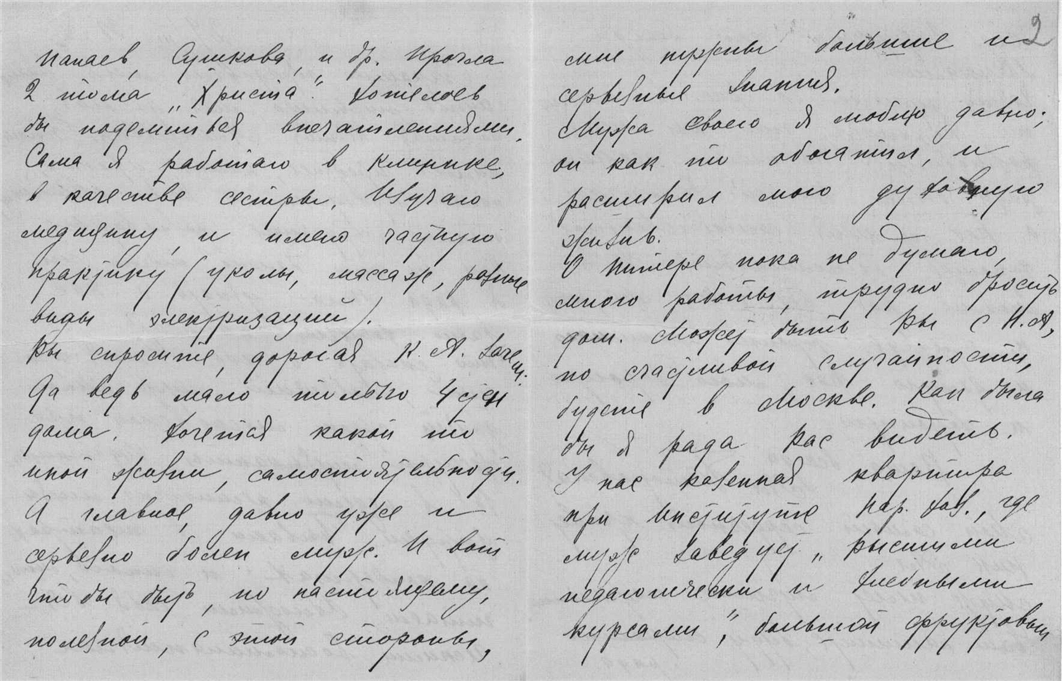 Панаев, Сушкова, и др. Прочла
2 тома „Христа". Хотелось
бы поделиться впечатлениями.
Сама я работаю в клинике,
в качестве сестры. Изучаю
медицину, и имею частную
практику (уколы, массаж, разные
виды электризации).
Вы спросите, дорогая К. А. зачем.
Да ведь мало только 4 стен
дома. Хочется какой то
иной жизни, самостоятельности.
А главное, давно уже и
серьезно болен муж. И вот
чтобы быть, по настоящему,
полезной, с этой стороны,
2
мне нужны большие и
серьезные знания.
Мужа своего я люблю давно;
он как то обогатил, и
расширил мою духовную
жизнь.
О Питере пока не думаю,
много работы, трудно бросить
дом. Может быть Вы с Н. А,
по счастливой случайности,
будете в Москве. Как была
бы я рада Вас видеть.
У нас казенная квартира
при Институте Нар. Хоз., где
муж заведует „высшими
педагогически и учебными
курсами", большой фруктовый